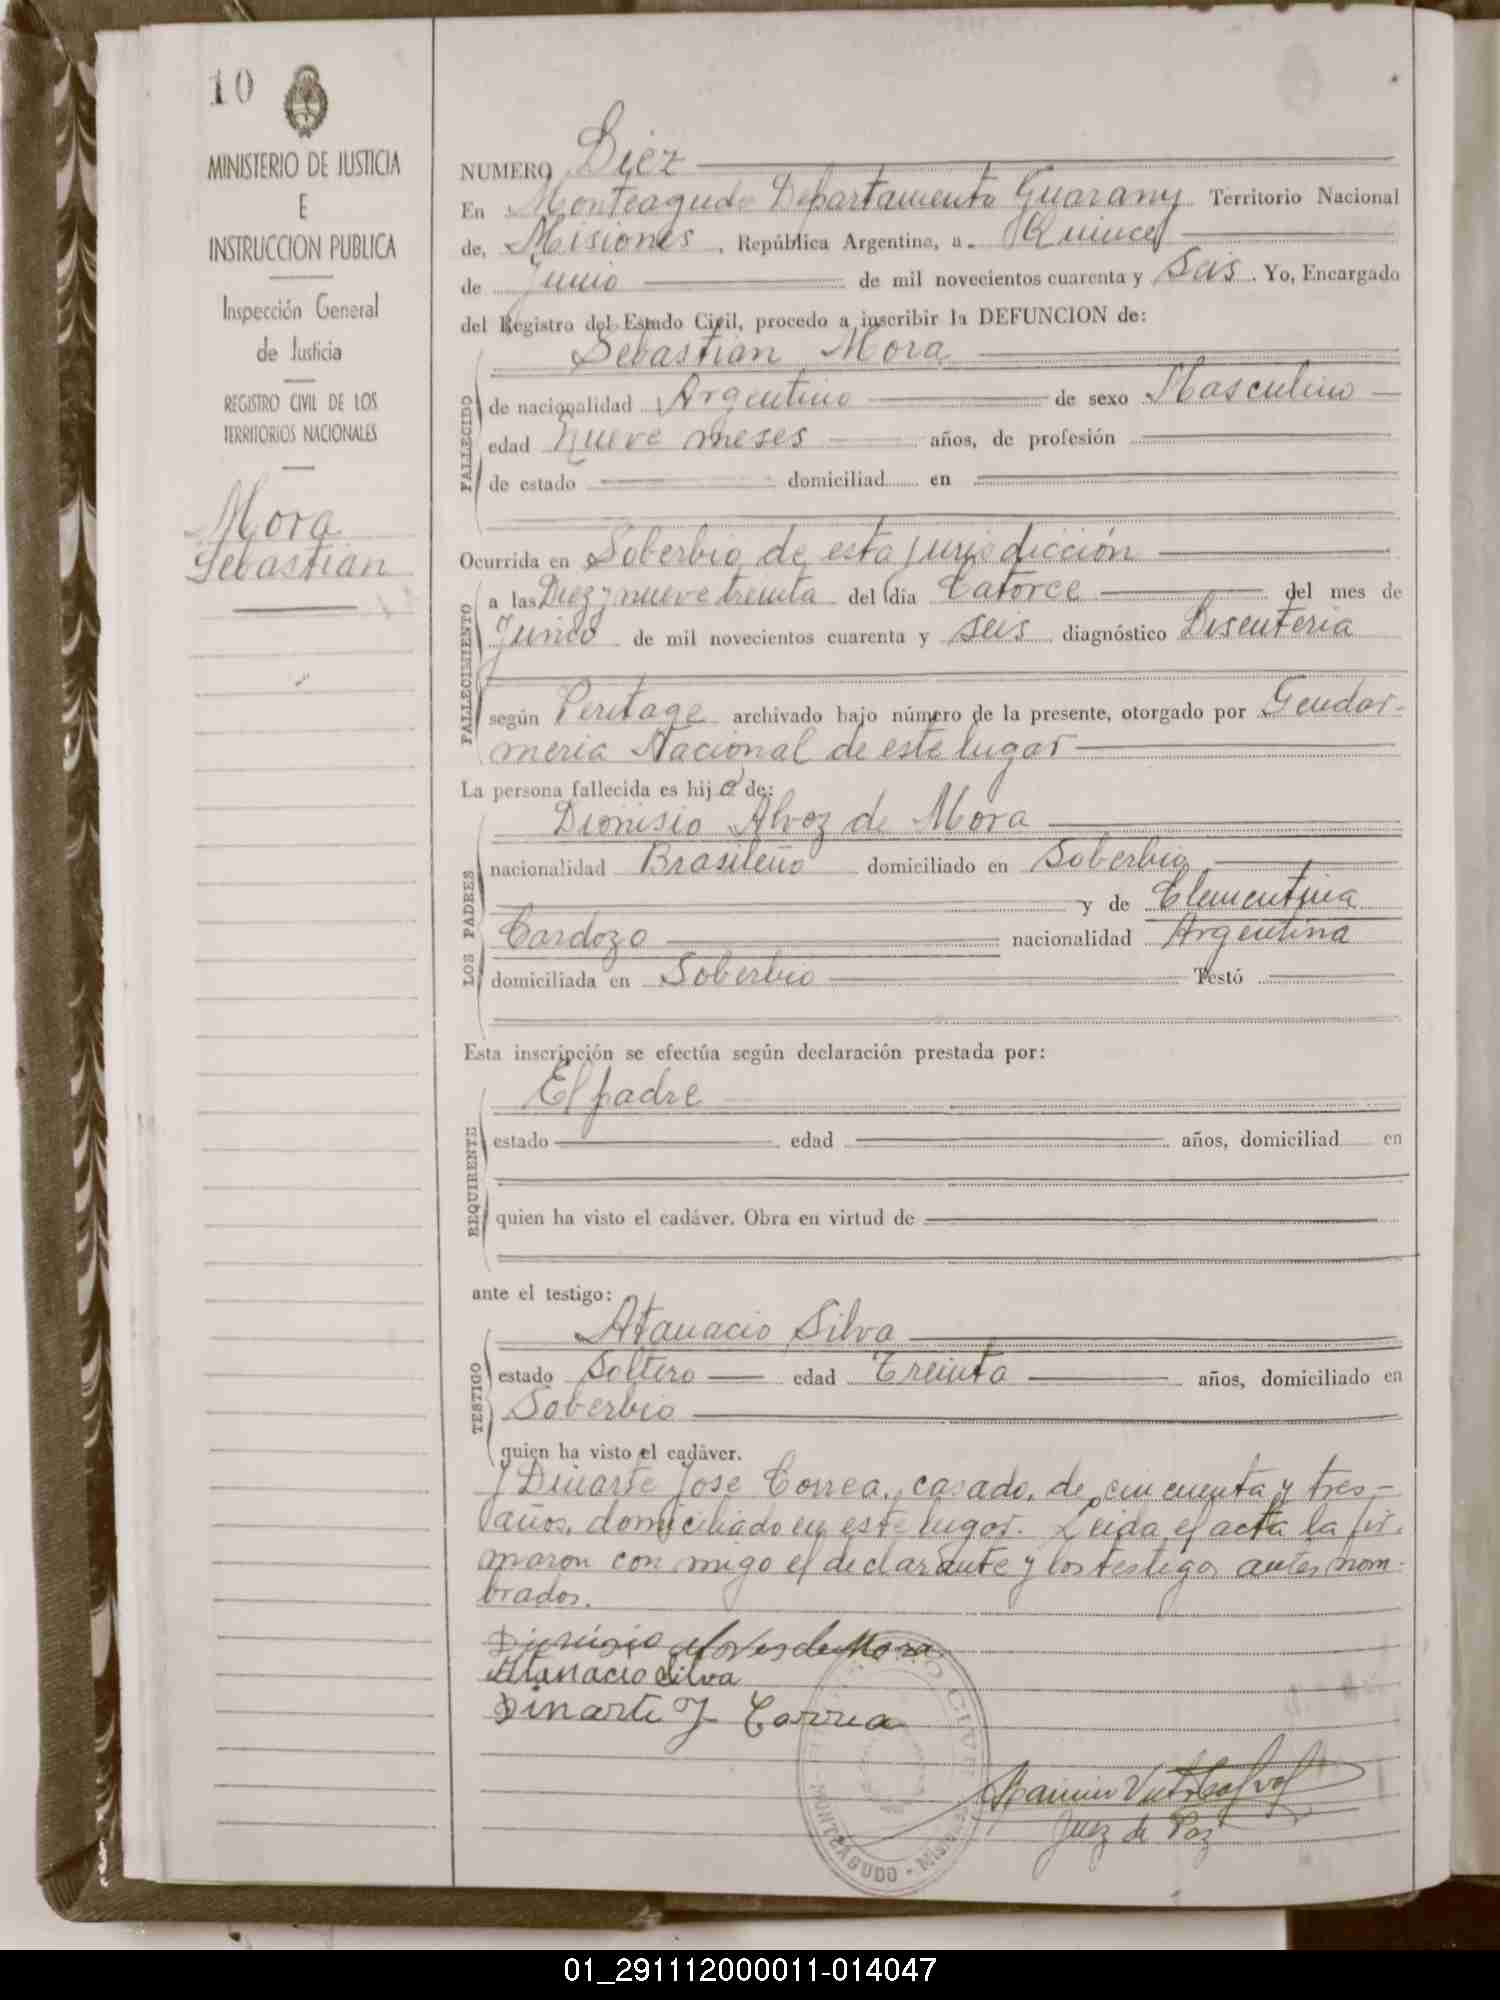 10
MINISTERIO DE JUSTICIA
E
INSTRUCCION PUBLICA
Inspección General
de Justicia
REGISTRO CIVIL DE LOS
TERRITORIOS NACIONALES
Mora
Sebastian
NUMERO Diez
En Monteagudo Departamento Guarany Territorio Nacional
de, Misiones, República Argentina, a. Quince
de Junio de mil novecientos cuarenta y Seis. Yo, Encargado
del Registro del Estado Civil, procedo a inscribir la DEFUNCION de:
FALLECIDO
Sebastian Mora
de nacionalidad Argentino de sexo Masculino
edad Nueve meses años, de profesión
de estado domiciliad en
Ocurrida en Soberbio de esta jurisdicción
FALLECIMIENTO
a las Diez y nueve treinta del día Catorce del mes de
Junio de mil novecientos cuarenta y seis diagnóstico Disenteria
según Peritage archivado bajo número de la presente, otorgado por Gendar-
meria Nacional de este lugar
La persona fallecida es hijo de:
LOS PADRES
Dionisio Alvez de Mora
nacionalidad Brasileño domiciliado en Soberbio
y de Clementina
Cardozo nacionalidad Argentina
domiciliada en Soberbio Testó
Esta inscripción se efectúa según declaración prestada por:
REQUIRENTE
El padre
estado edad años, domiciliad en
quien ha visto el cadáver. Obra en virtud de
ante el testigo:
TESTIGO
Atanacio Silva
estado Soltero edad Treinta años, domiciliado en
Soberbio
quien ha visto el cadáver.
y Dinarte Jose Correa, casado, de cincuenta y tres-
años, domiciliado en este lugar. Leida el acta la fir-
maron con migo el declarante y los testigos antes nom-
brados.
Dionisio Alves de Mora
Atanacio Silva
Dinarte J Correa
CIVIL
MONTEAGUDO - MISIONES
Juez de Paz
01_291112000011-014047